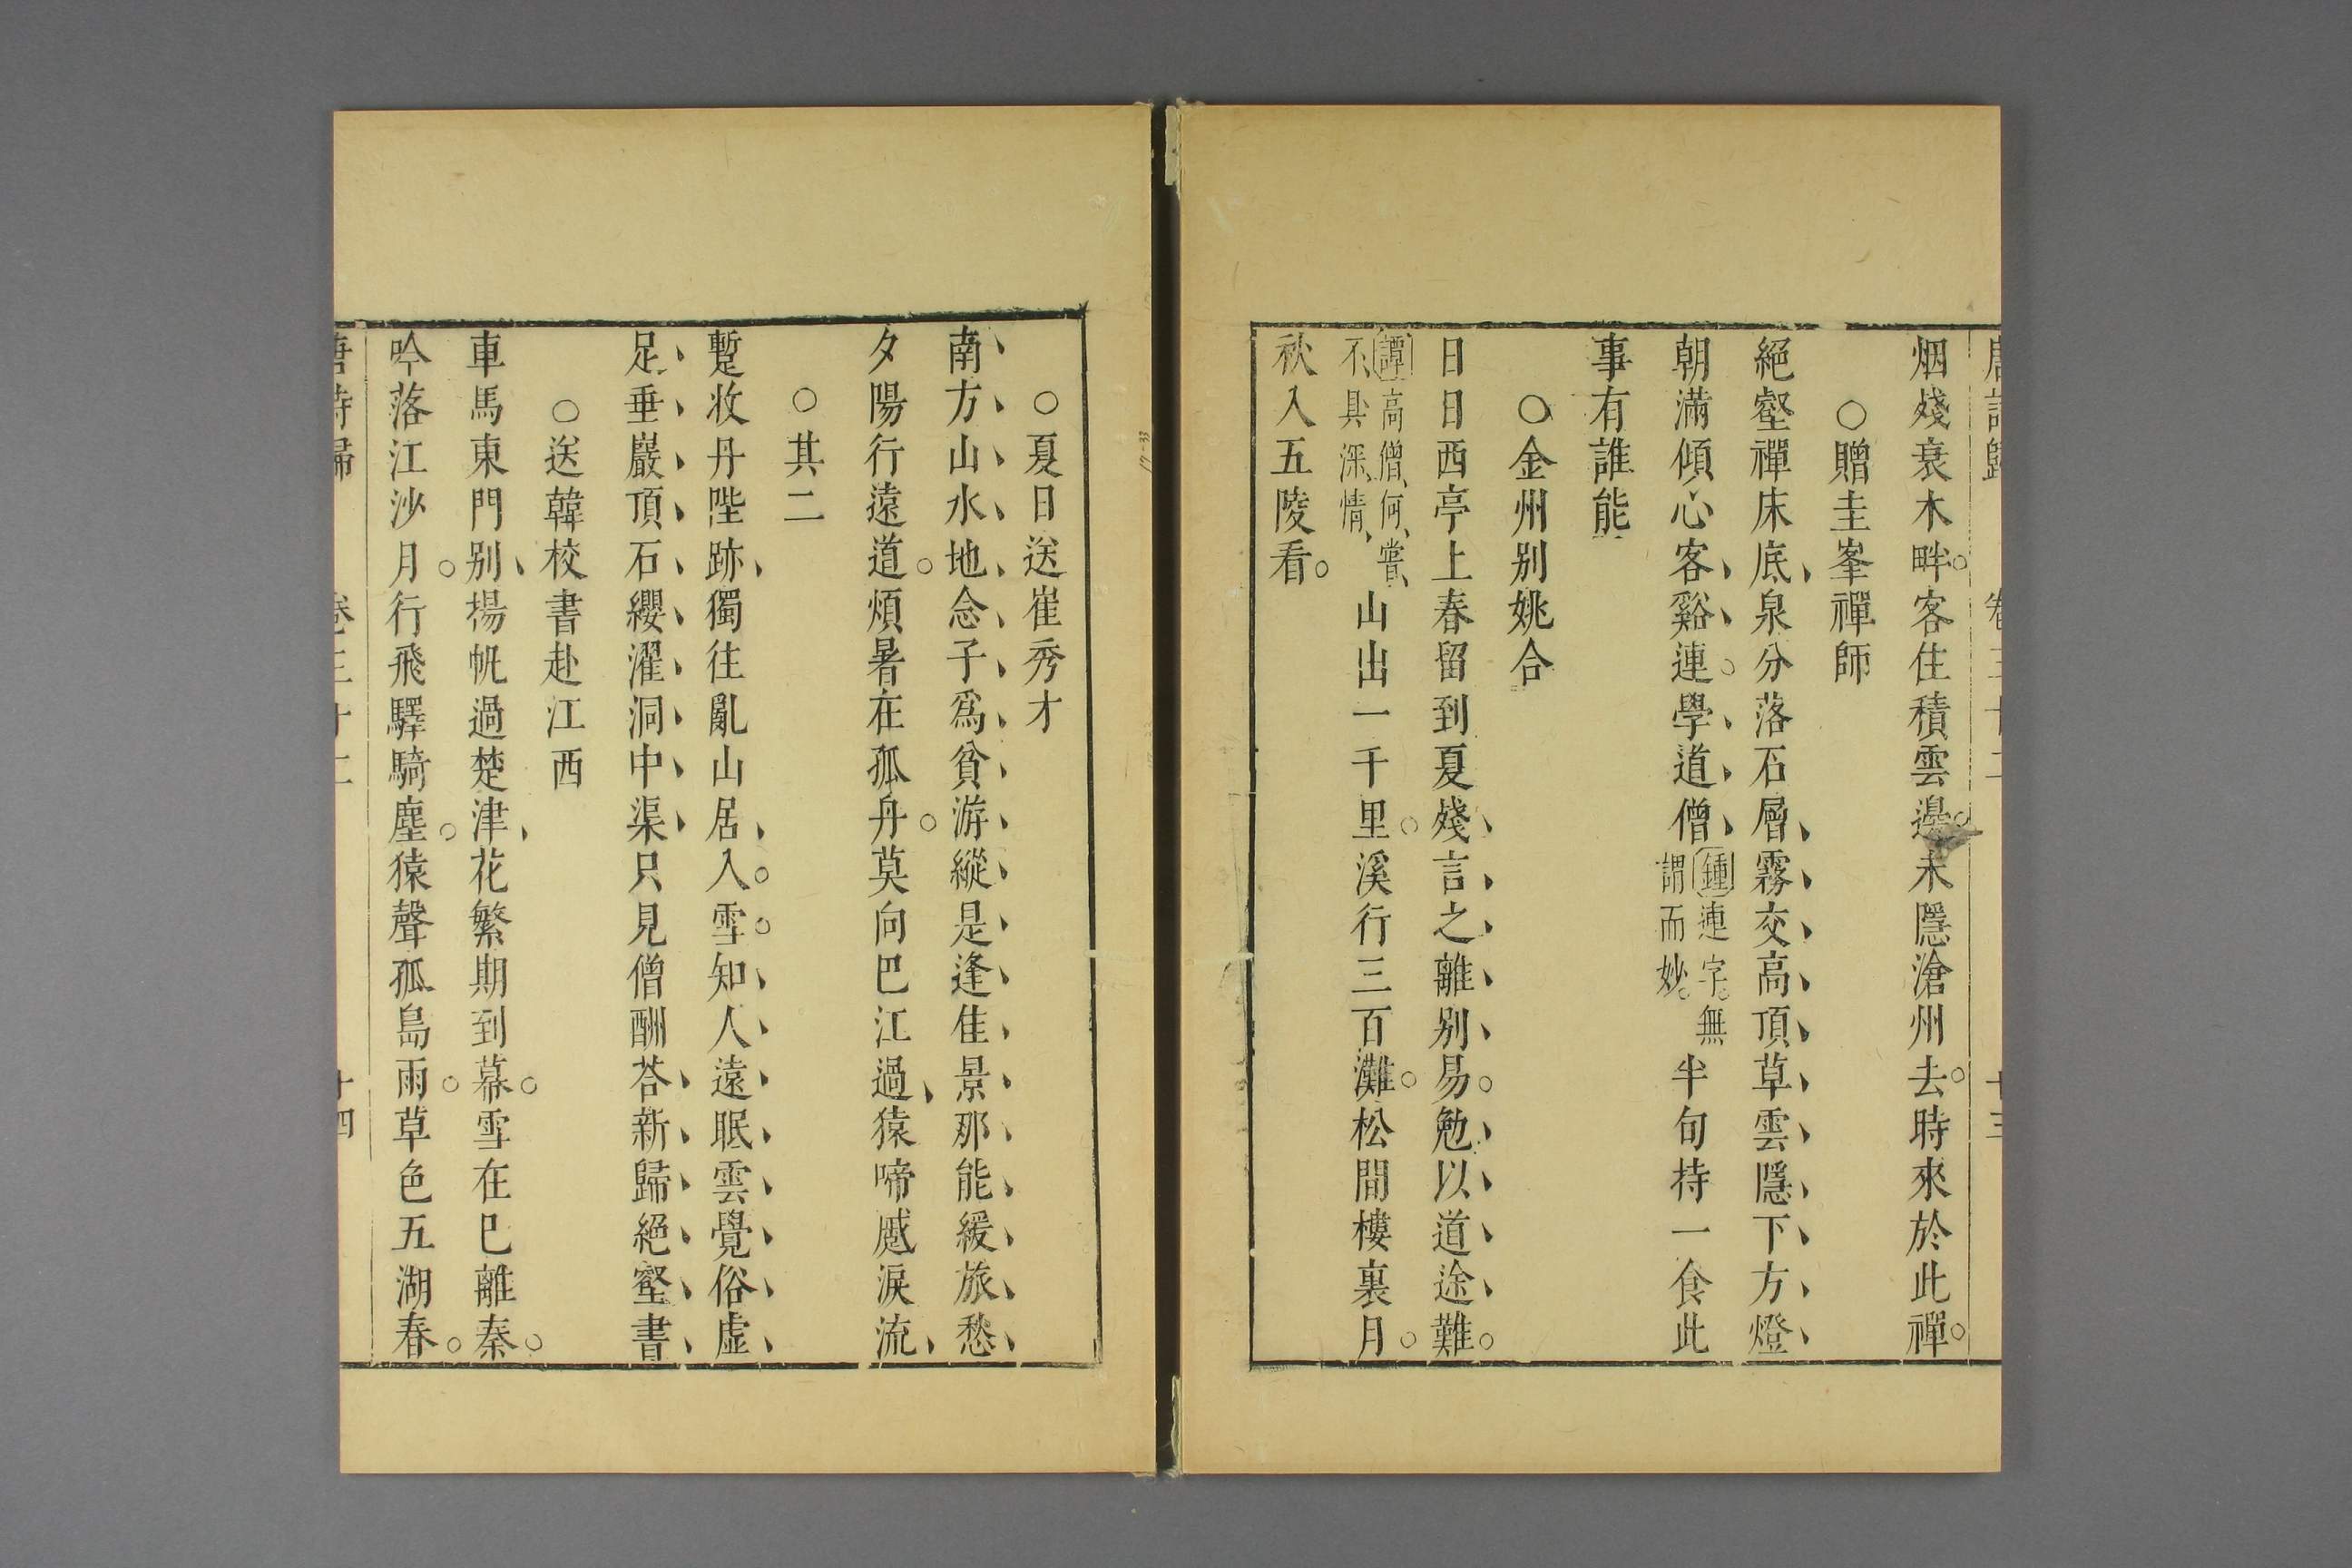 唐詩歸 卷三十二 十三
烟殘衰木畔客住積雲邊未隱滄州去時來於此禪
○贈圭峯禪師
絕壑禪床底泉分落石層霧交高頂草雲隱下方燈
朝滿傾心客谿連學道僧鍾連字無謂而妙半句持一食此
事有誰能
○金州别姚合
日日西亭上春留到夏殘言之離别易勉以道途難
譚高僧何嘗不具深情山出一千里溪行三百灘松間樓裏月
秋入五陵看
○夏日送崔秀才
南方山水地念子爲貧游縱是逢佳景那能緩旅愁
夕陽行遠道煩暑在孤舟莫向巴江過猿啼慼淚流
○其二
蹔收丹陛跡獨往亂山居入雪知人遠眠雲覺俗虛
足垂巖頂石纓濯洞中渠只見僧酬荅新歸絕壑書
○送韓校書赴江西
車馬東門别揚帆過楚津花繁期到幕雪在巳離秦
吟落江沙月行飛驛騎塵猿聲孤島雨草色五湖春
唐詩歸 卷三十二 十四